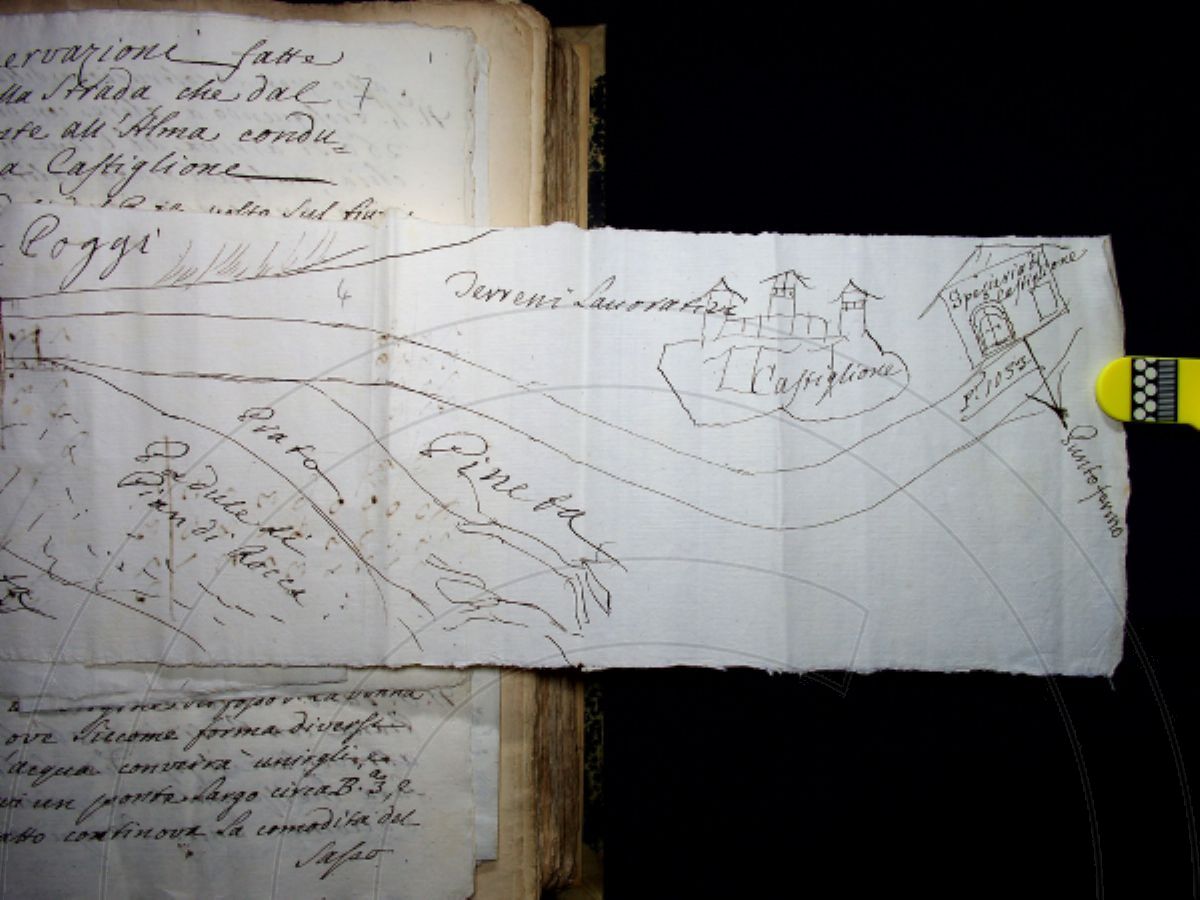 ervazioni fatte
lla Strada che dal 7
nte all'Alma condu=
a Castiglione
volto sul fiu
Poggi
4
Terreni Lavorativi
Spezieria di
Castiglione
Castiglione
Pi. 1033
Punto fermo
Prato
Pineta
Padule di
Pian di Rocca
ove siccome forma diversi
acqua converrà unirgli, e
vi un ponte largo circa B.a 3, e
atto continova la comodità del
Sasso